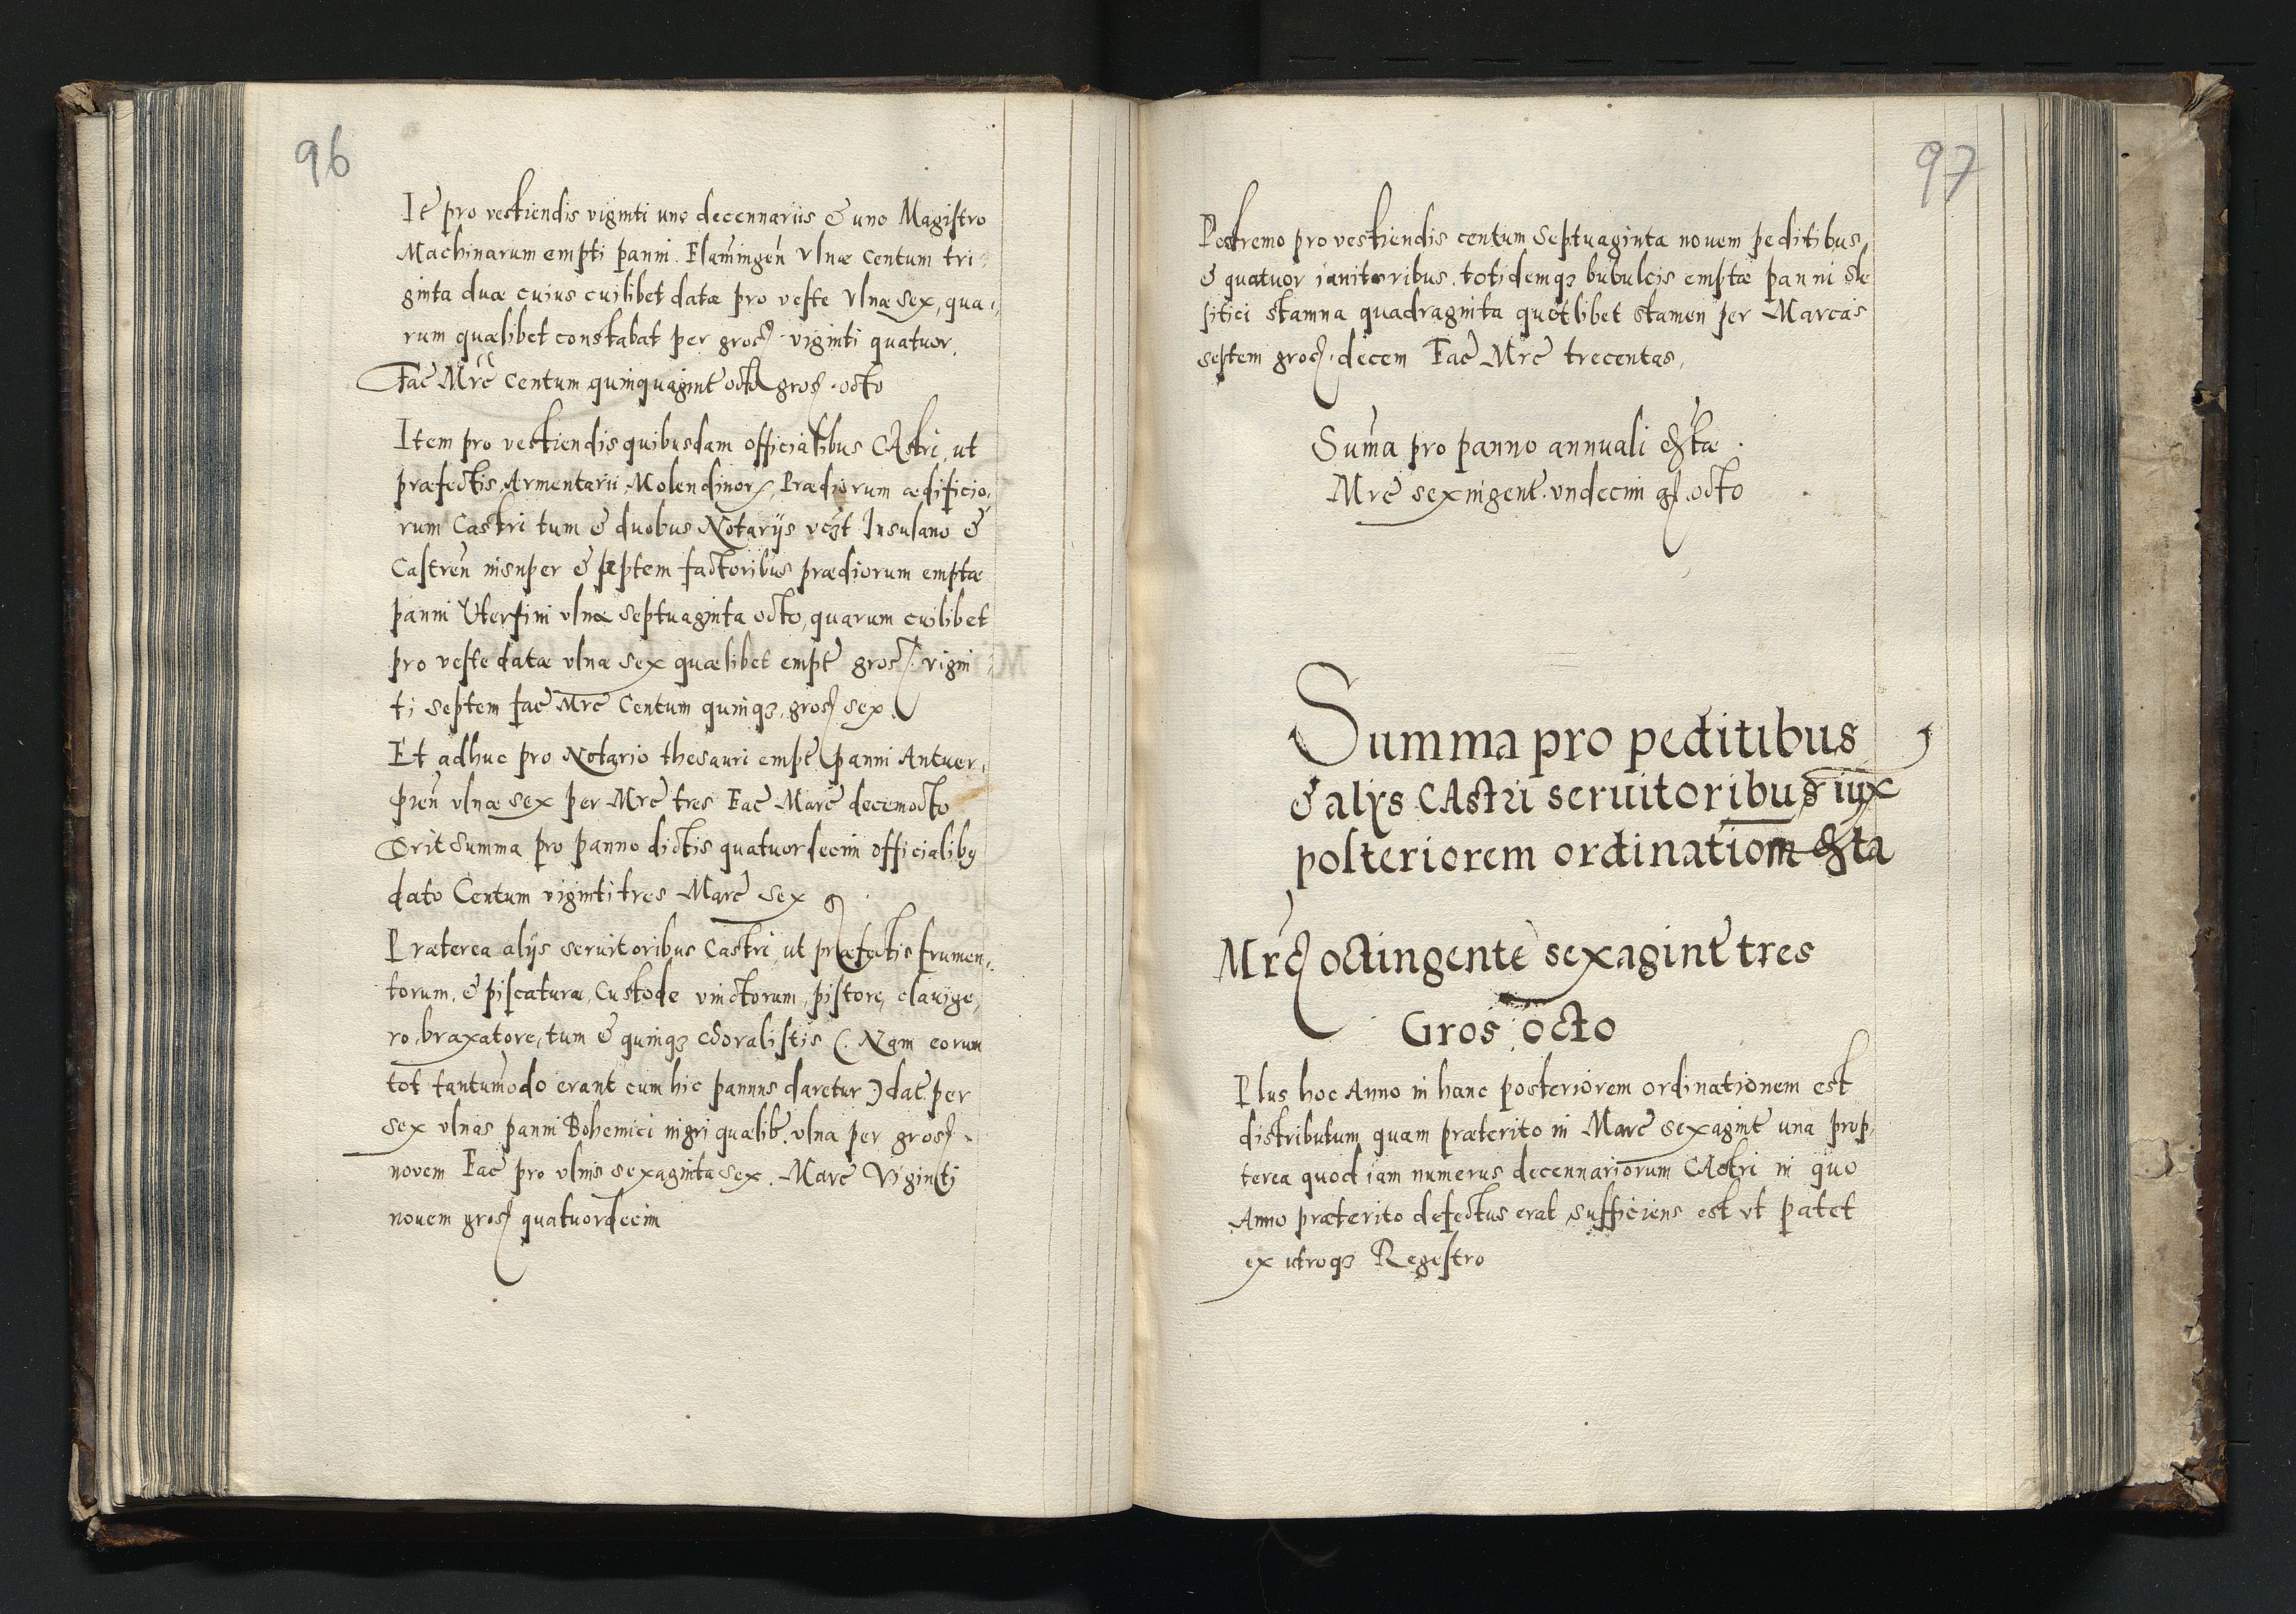 96
Itē pro vestiendis viginti uno decennariis & uno Magistro
Machinarum empti panni. Flamingēn vlnæ Centum tri-
ginta duæ cuius cuilibet datæ pro veste vlnæ sex, qua-
rum quælibet constabat per gros. viginti quatuor.
Fac Mrc Centum quinquagint octo gros. octo
Item pro vestiendis quibusdam officialibus CAstri, ut
præfectis, Armentarii, Molendinor, Prædiorum ædificio-
rum Castri tum & duobus Notarijs vczt Insulano &
Castreñ insuper & septem factoribus prædiorum emptæ
panni Uterfini vlnæ septuaginta octo, quarum cuilibet
pro veste datæ vlnæ sex quælibet empt gros. vigin
ti septem fac Mrc Centum quinqz, gros sex.
Et adhuc pro Notario thesauri empt panni Antuer-
pień vlnæ sex per Mrc tres Fac Marc decemocto
Erit Summa pro panno dictis quatuordecim officialibg
dato Centum viginti tres Marc sex g
Præterea alijs seruitoribus Castri, ut præfectis frumen-
torum, & piscaturæ, Custode vinctorum, pistore, clauige,
ro, braxatore, tum & quinqz choralistis (. Nam eorum
tot tantumodo erant cum hic pannus daretur ) dat. per
sex vlnas panni Bohemici nigri quælib. vlna per gros.
novem Fac pro vlnis sexaginta sex. Marc Viginti
nouem gros quatuordecim
97
Postremo pro vestiendis centum septuaginta novem peditibus,
& quatuor ianitoribus. totidemqz bubulcis emptæ panni Sle
sitici stamna quadraginta quotlibet stamen per Marcas
septem gros. decem Fac Mrc trecentas,
Suma pro panno annuali exta
Mrc sexingent. vndecim g. octo
Summa pro peditibus
& alijs CAstri seruitoribus iux
posteriorem ordination exta
Mrc octingente sexagint tres
Gros octo
Plus hoc Anno in hanc posteriorem ordinationem est
distributum quam præterito in Marc sexagint una prop,
terea quod iam numerus decennariorum CAstri in quo
Anno præterito defectus erat sufficiens est vt patet
ex utroqz Regestro